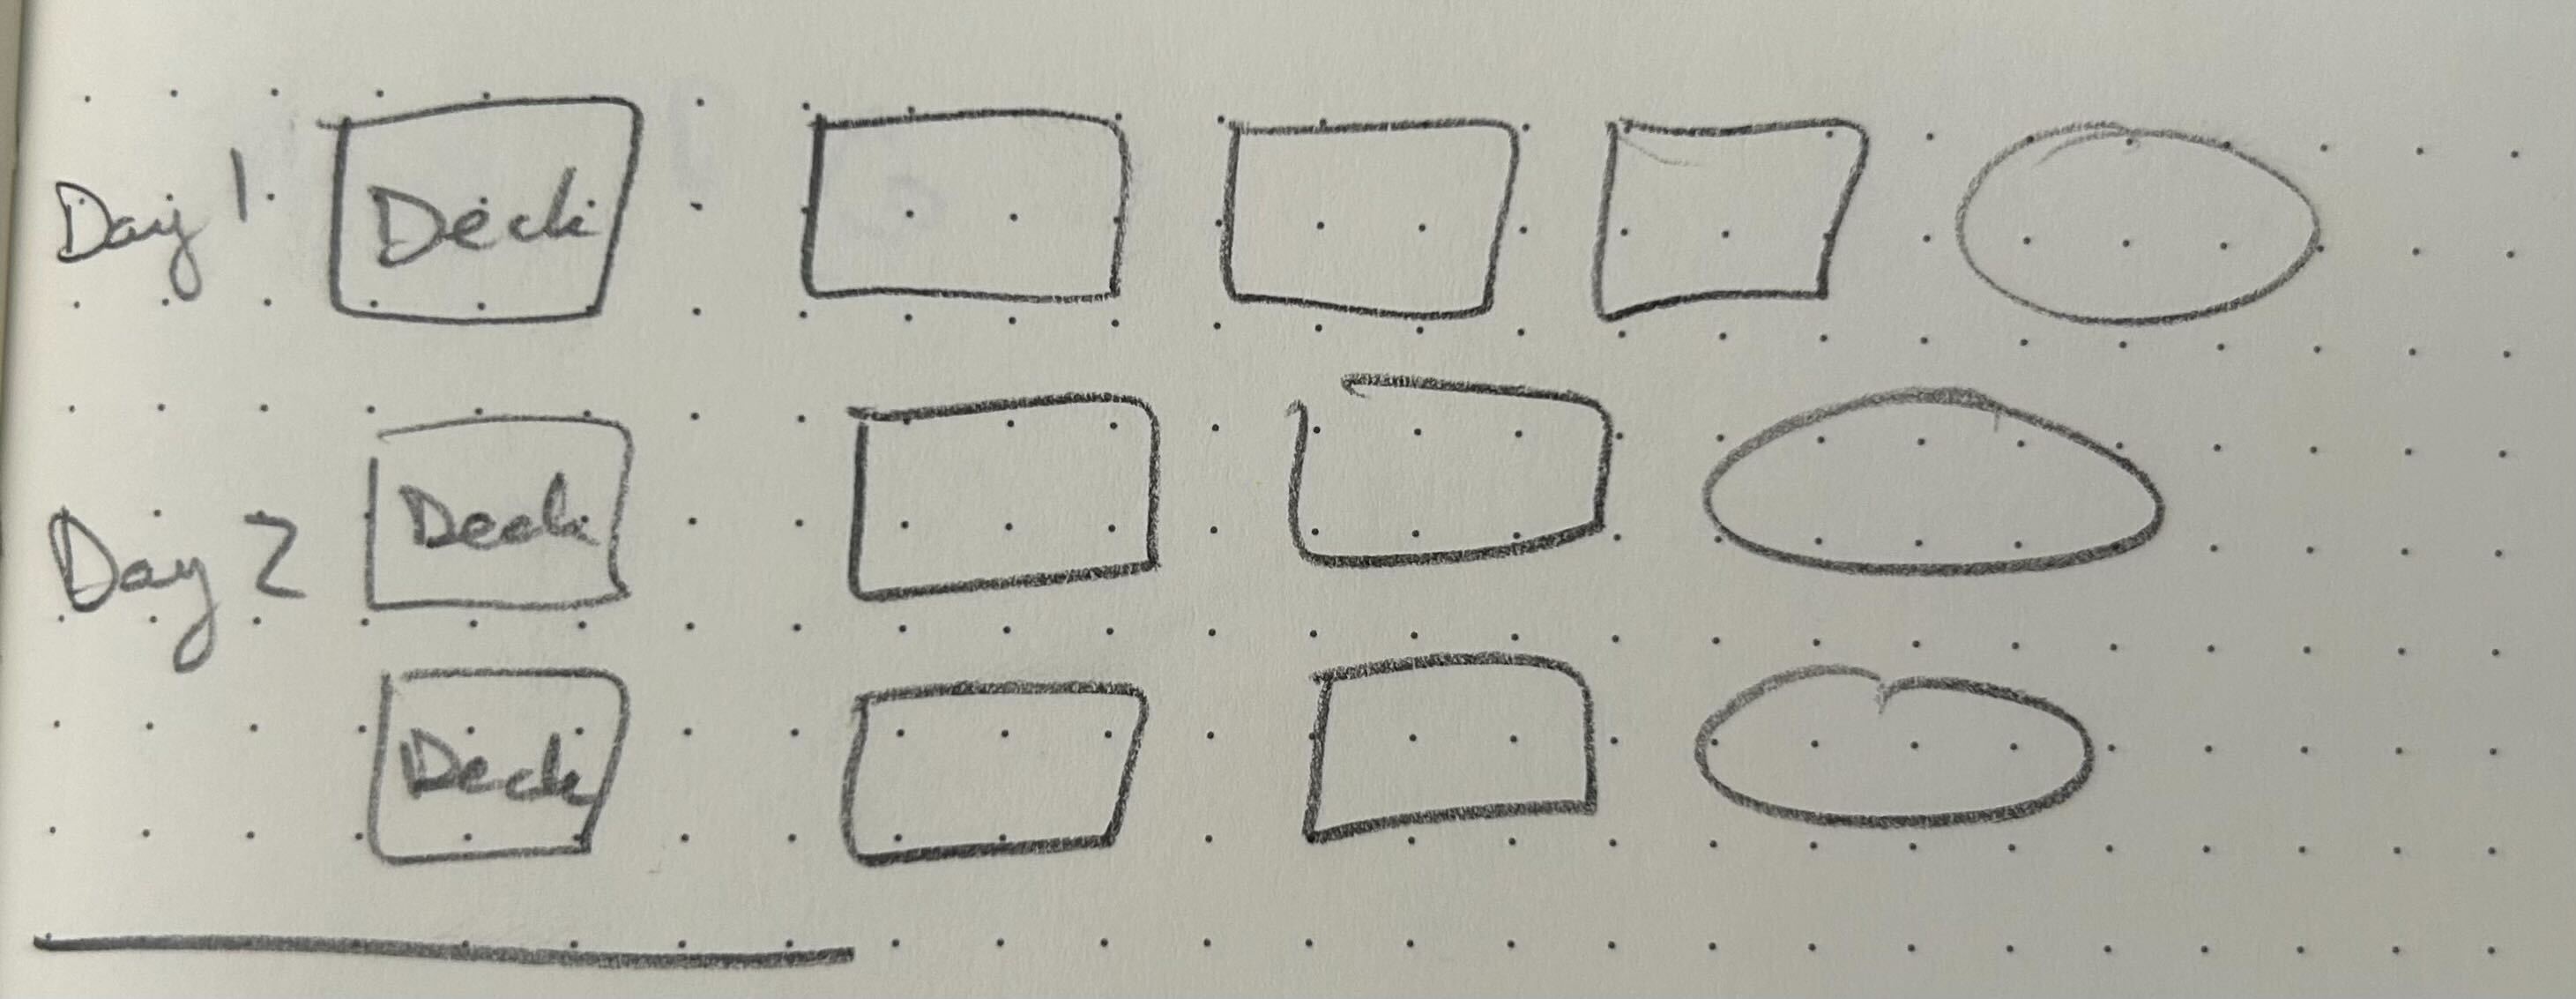 Day 1 Deck
Day 2 Deck
Deck